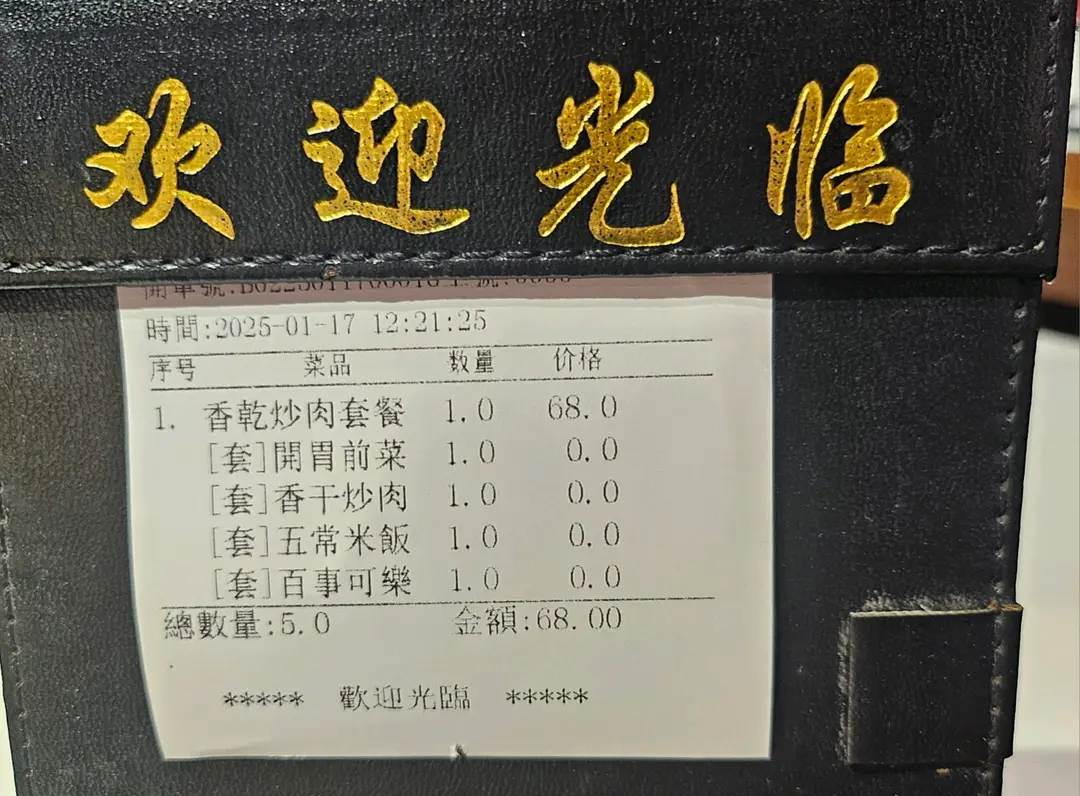 欢迎光临
時間:2025-01-17 12:21:25
序号 菜品 数量 价格
1. 香乾炒肉套餐 1.0 68.0
[套]開胃前菜 1.0 0.0
[套]香干炒肉 1.0 0.0
[套]五常米飯 1.0 0.0
[套]百事可樂 1.0 0.0
總數量:5.0 金額:68.00
***** 歡迎光臨 *****